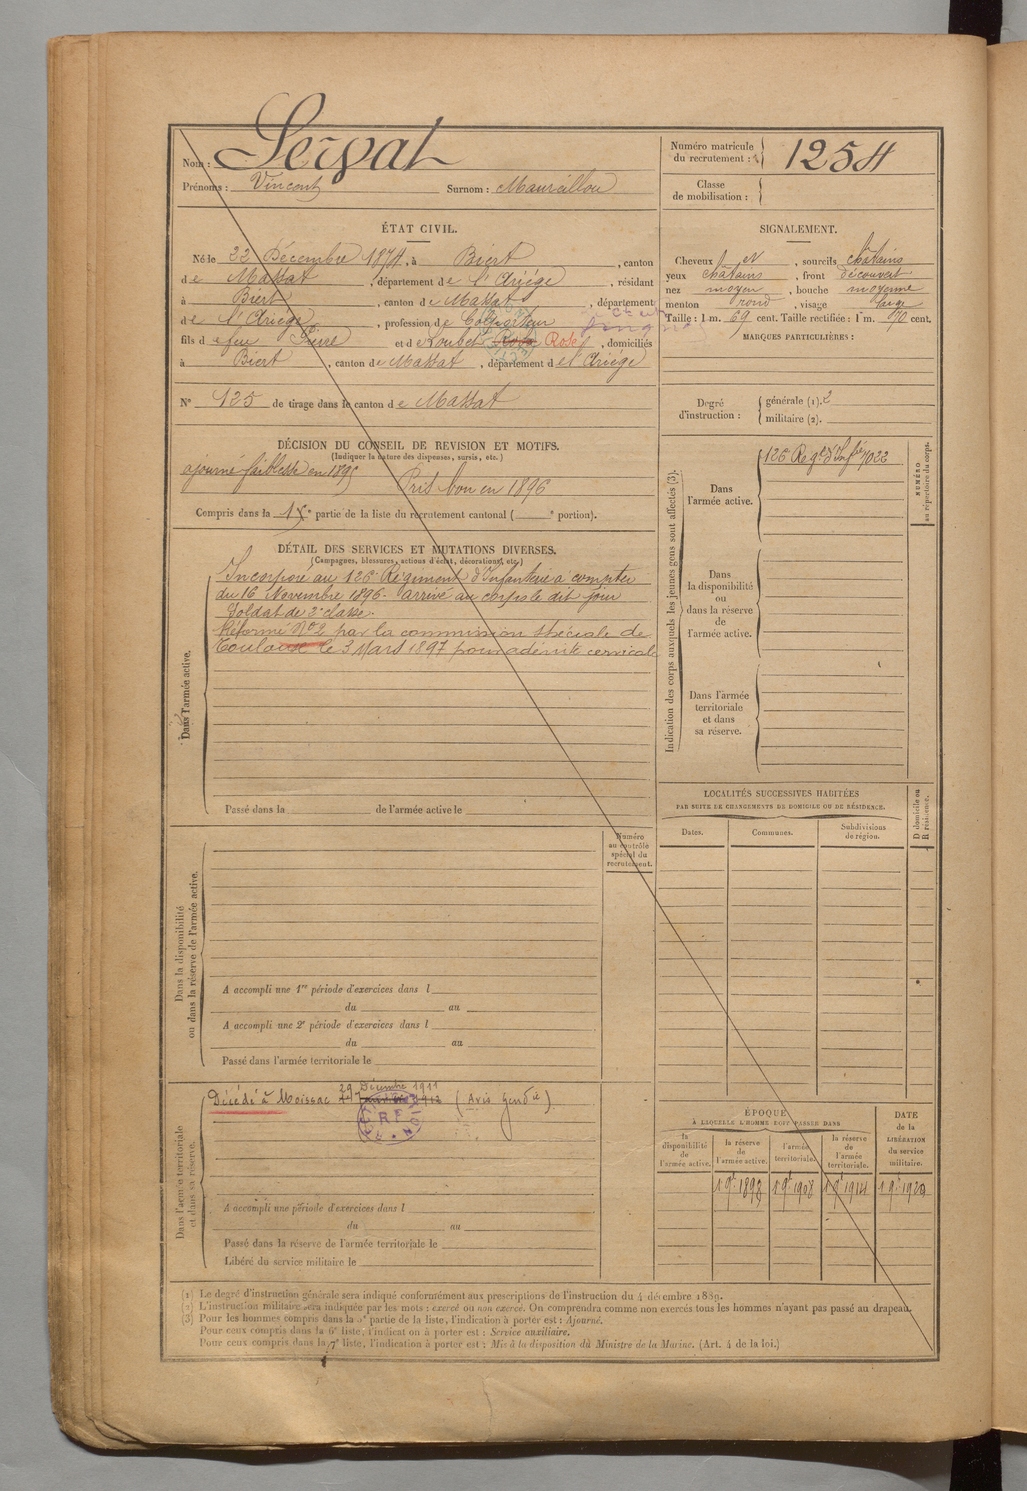 Nom : Servat
Prénoms : Vincent Surnom : Maureillou
Numéro matricule du recrutement : 1254
Classe de mobilisation :
ÉTAT CIVIL.
Né le 22 Décembre 1874, à Biert, canton
de Massat, département de l'Ariége, résidant
à Biert, canton de Massat, département
de l'Ariège, profession de Colporteur
fils de feu Pierre et de Loubet Rosa Rose, domiciliés
à Biert, canton de Massat, département de l'Ariége
N° 125 de tirage dans le canton de Massat
SIGNALEMENT.
Cheveux N, sourcils châtains
yeux châtains, front découvert
nez moyen, bouche moyenne
menton rond, visage large
Taille : 1 m. 69 cent. Taille rectifiée : 1 m. 70 cent.
MARQUES PARTICULIÈRES :
Degré d'instruction : générale (1). 2
militaire (2).
DÉCISION DU CONSEIL DE REVISION ET MOTIFS.
(Indiquer la nature des dispenses, sursis, etc.)
ajourné faiblesse en 1895
Pris bon en 1896
Compris dans la 1e partie de la liste du recrutement cantonal ( e portion).
DÉTAIL DES SERVICES ET MUTATIONS DIVERSES.
(Campagnes, blessures, actions d'éclat, décorations, etc.)
Dans l'armée active.
Incorporé au 126e Régiment d'Infanterie à compter
du 16 Novembre 1896. arrivé au corps le dit jour
Soldat de 2e classe.
Réformé N°2 par la commission spéciale de
Toulouse le 3 Mars 1897 pour adénite cervicale
Passé dans la de l'armée active le
Indication des corps auxquels les jeunes gens sont affectés (3).
Dans l'armée active.
126 Régt d'Infie 7022
NUMÉRO au répertoire du corps.
Dans la disponibilité ou dans la réserve de l'armée active.
Dans l'armée territoriale et dans sa réserve.
LOCALITÉS SUCCESSIVES HABITÉES
PAR SUITE DE CHANGEMENTS DE DOMICILE OU DE RÉSIDENCE.
Dates. Communes. Subdivisions de région. D domicile ou R résidence.
Numéro au contrôle spécial du recrutement.
Dans la disponibilité ou dans la réserve de l'armée active.
A accompli une 1re période d'exercices dans l
du au
A accompli une 2e période d'exercices dans l
du au
Passé dans l'armée territoriale le
Dans l'armée territoriale et dans sa réserve.
29 Décembre 1911
Décédé à Moissac (Avis Gendie)
RF
A accompli une période d'exercices dans l
du au
Passé dans la réserve de l'armée territoriale le
Libéré du service militaire le
ÉPOQUE
À LAQUELLE L'HOMME DOIT PASSER DANS
la disponibilité de l'armée active. la réserve de l'armée active. l'armée territoriale. la réserve de l'armée territoriale.
DATE de la LIBÉRATION du service militaire.
1 9e 1898 1 9e 1908 1 9e 1914 1 9e 1920
(1) Le degré d'instruction générale sera indiqué conformément aux prescriptions de l'instruction du 4 décembre 1889.
(2) L'instruction militaire sera indiquée par les mots : exercé ou non exercé. On comprendra comme non exercés tous les hommes n'ayant pas passé au drapeau.
(3) Pour les hommes compris dans la 5e partie de la liste, l'indication à porter est : Ajourné.
Pour ceux compris dans la 6e liste, l'indication à porter est : Service auxiliaire.
Pour ceux compris dans la 7e liste, l'indication à porter est : Mis à la disposition du Ministre de la Marine. (Art. 4 de la loi.)